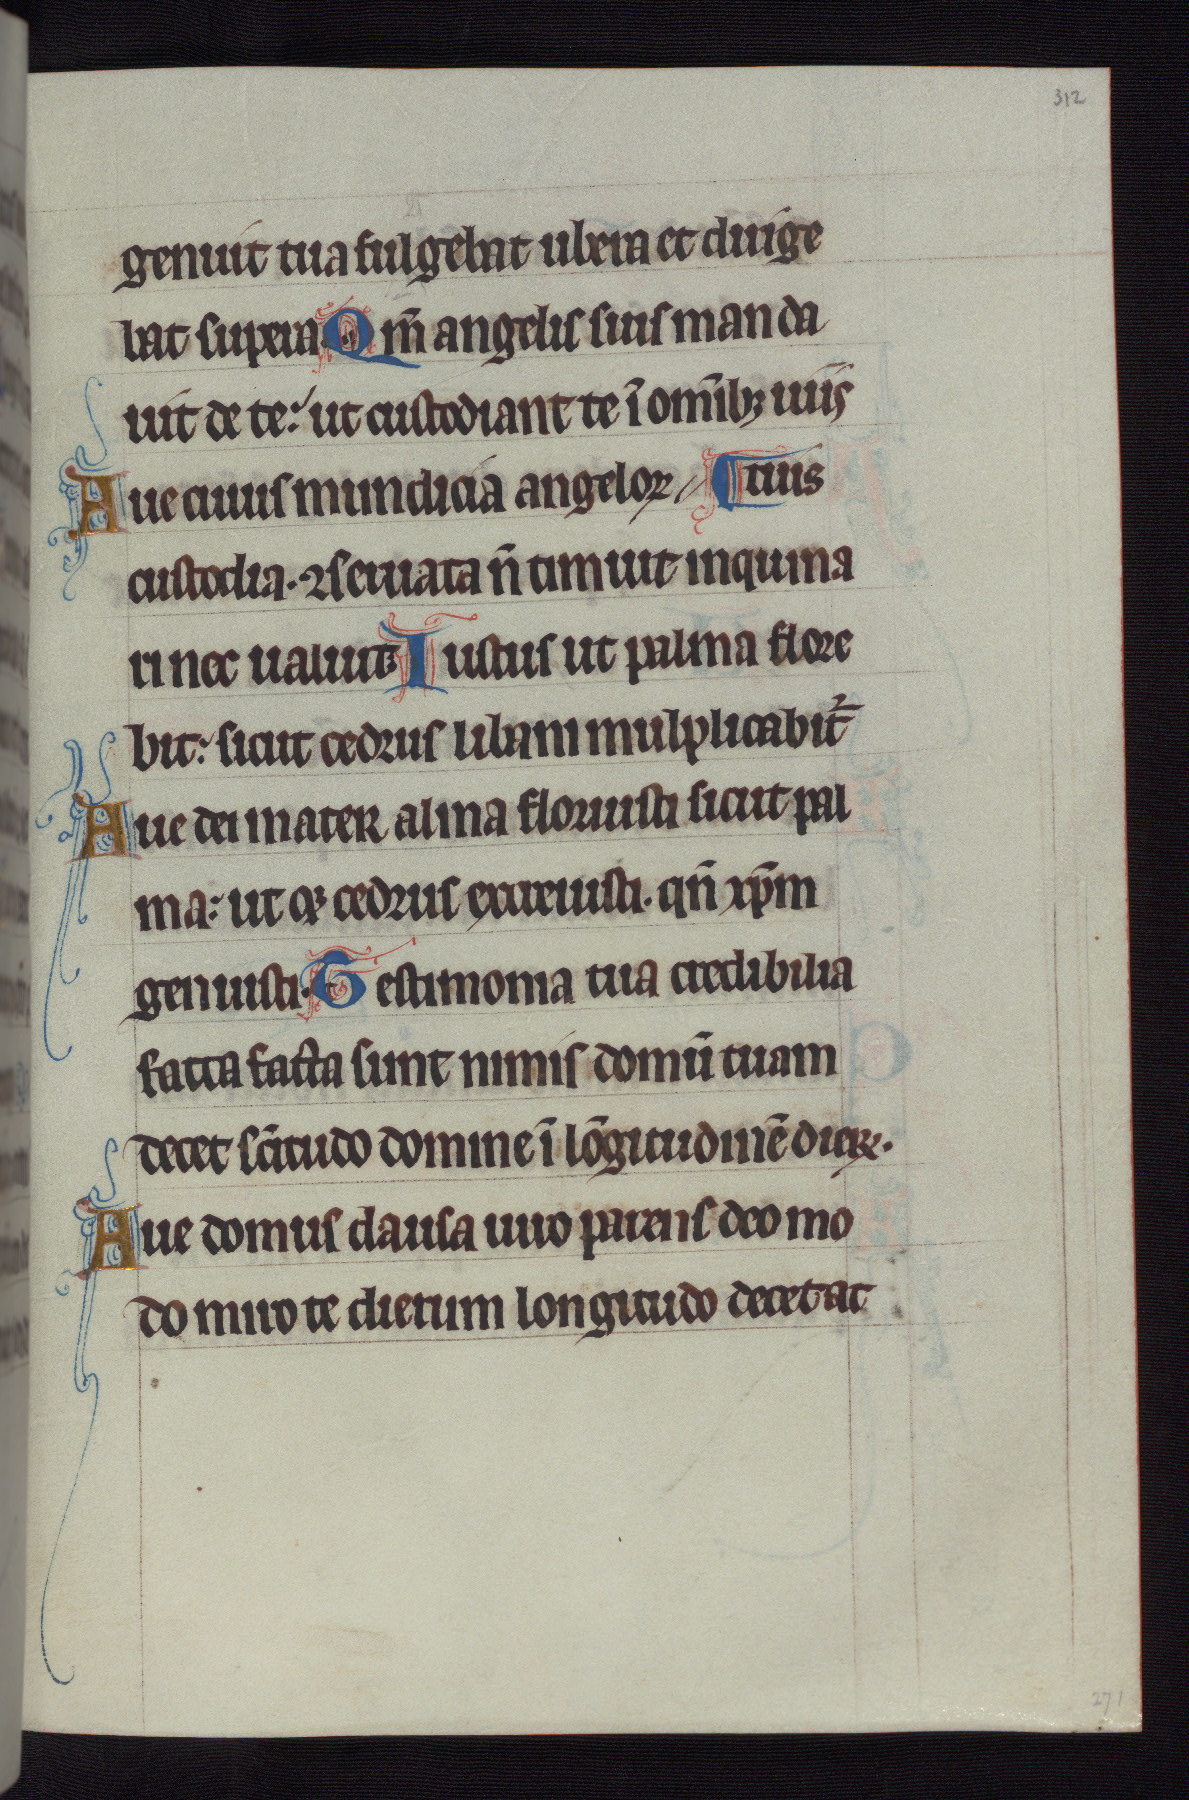 312
genuit tua fulgebat ubera et diuige
bat supera. Qm̄ angelis suis manda
uit de te: ut custodiant te ī omīb; uiis
Aue ciuus mundicia angeloꝝ // tuis
custodia. ⁊seruata n̄ timuit inquina
ri nec ualuit Iustus ut palma flore
bit: sicut cedrus libani mulꝑlicabit᷑
Aue dei mater alma floruisti sicut pal
ma: ut cedrus excreuisti. qn̄ xp̄m
genuisti. Testimonia tua credibilia
facta facta sunt nimis domū tuam
decet sc̄itudo domine ī lōgitudinē dieꝝ.
Aue domus clausa uiro parens deo mo
do miro te dierum longitudo decet at
271